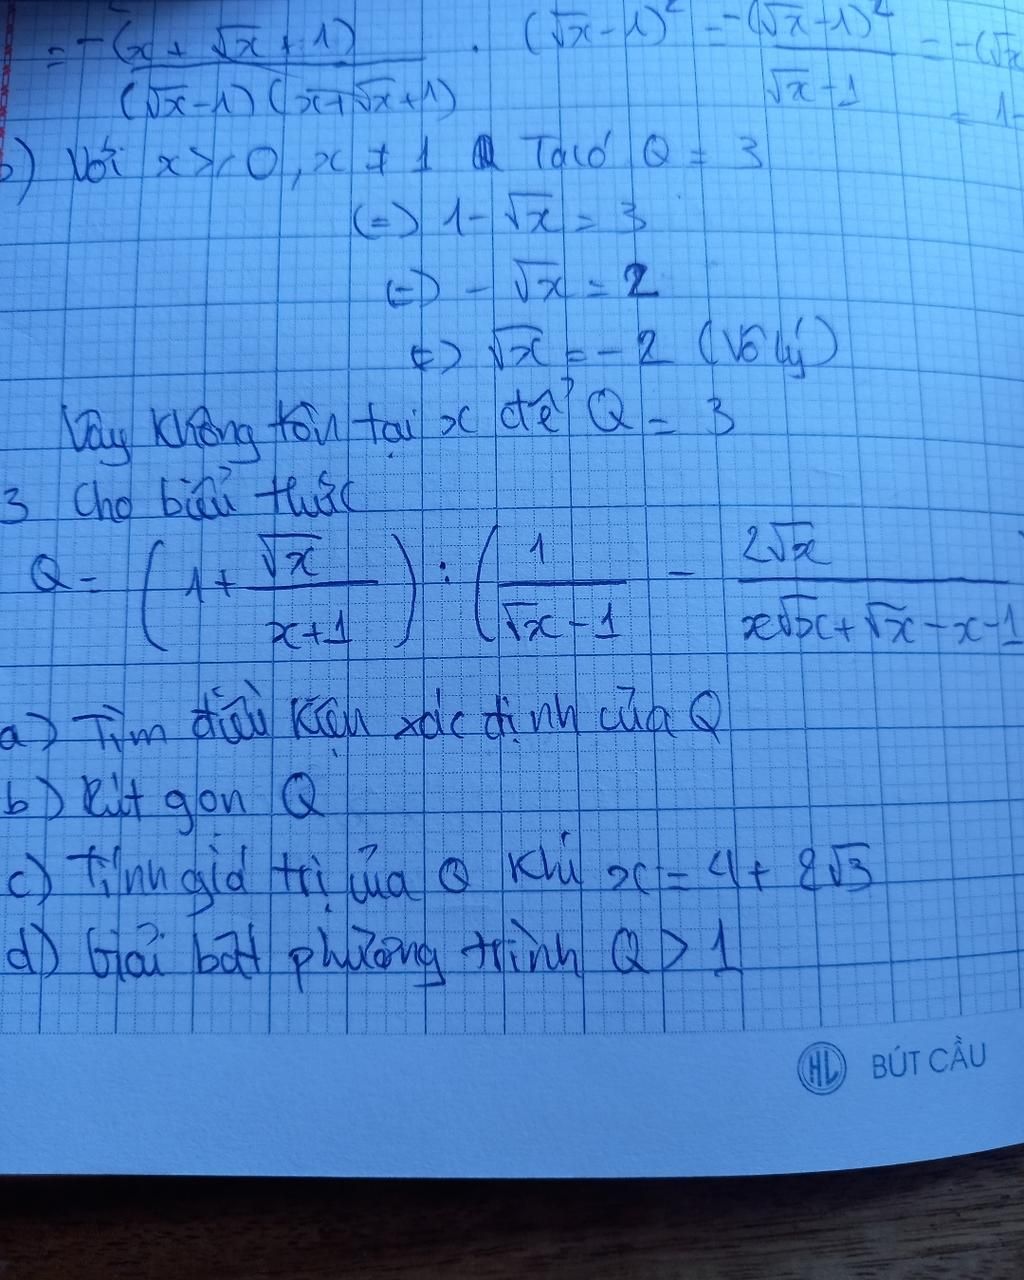 = -(x + √x + 1) / (√x-1)(x+√x+1) . (√x-1)² = -(√x-1)² / √x-1 = -(√x
= 1-
b) Với x ≥ 0, x ≠ 1 Ta có Q = 3
(=) 1 - √x = 3
(=) - √x = 2
(=) √x = - 2 (Vô lý)
Vậy không tồn tại x để Q = 3
3 Cho biểu thức
Q = (1 + √x / x+1) : (1 / √x - 1 - 2√x / x√x + √x - x - 1
a) Tìm điều kiện xác định của Q
b) Rút gọn Q
c) Tính giá trị của Q khi x = 4 + 2√3
d) Giải bất phương trình Q > 1
HL BÚT CẦU